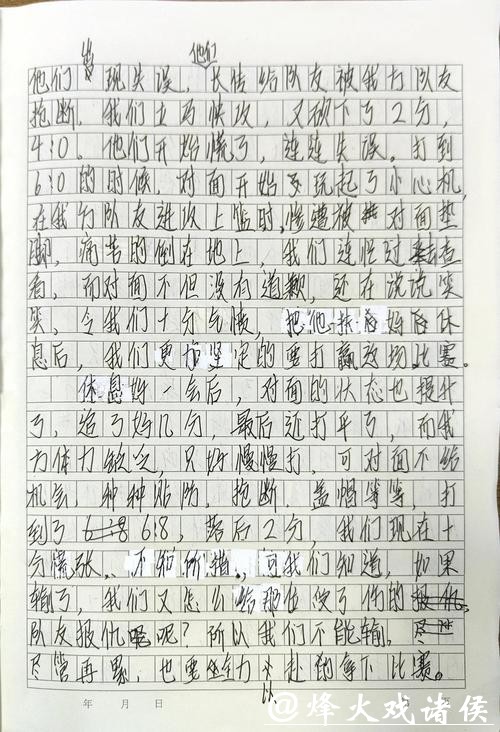 他们出现失误，他们长传给队友被我方队友
抢断，我们立马快攻，又砍下了2分，
4:0。他们开始慌了，连连失误。打到
6:0的时候，对面开始玩起了小心机，
在我方队友进攻上篮时，惨遭被对面垫
脚，痛苦的倒在地上，我们连忙过去查
看，而对面不但没有道歉，还在说说笑
笑，令我们十分气愤，把他扶好后休
息后，我们更加坚定的要打赢这场比赛。
休息好一会后，对面的状态也提升
了，追了好几分，最后还打平了，而我
方体力缺乏，只好慢慢打，可对面不给
机会，种种贴防，抢断，盖帽等等，打
到了6:8，落后2分，我们现在十
分慌张、不知所措。可我们知道，如果
输了，我们又怎么给那位受了伤的
队友报仇呢？所以我们不能输。
尽管再累，也要全力以赴的拿下比赛。
年 月 日
@烽火戏诸侯